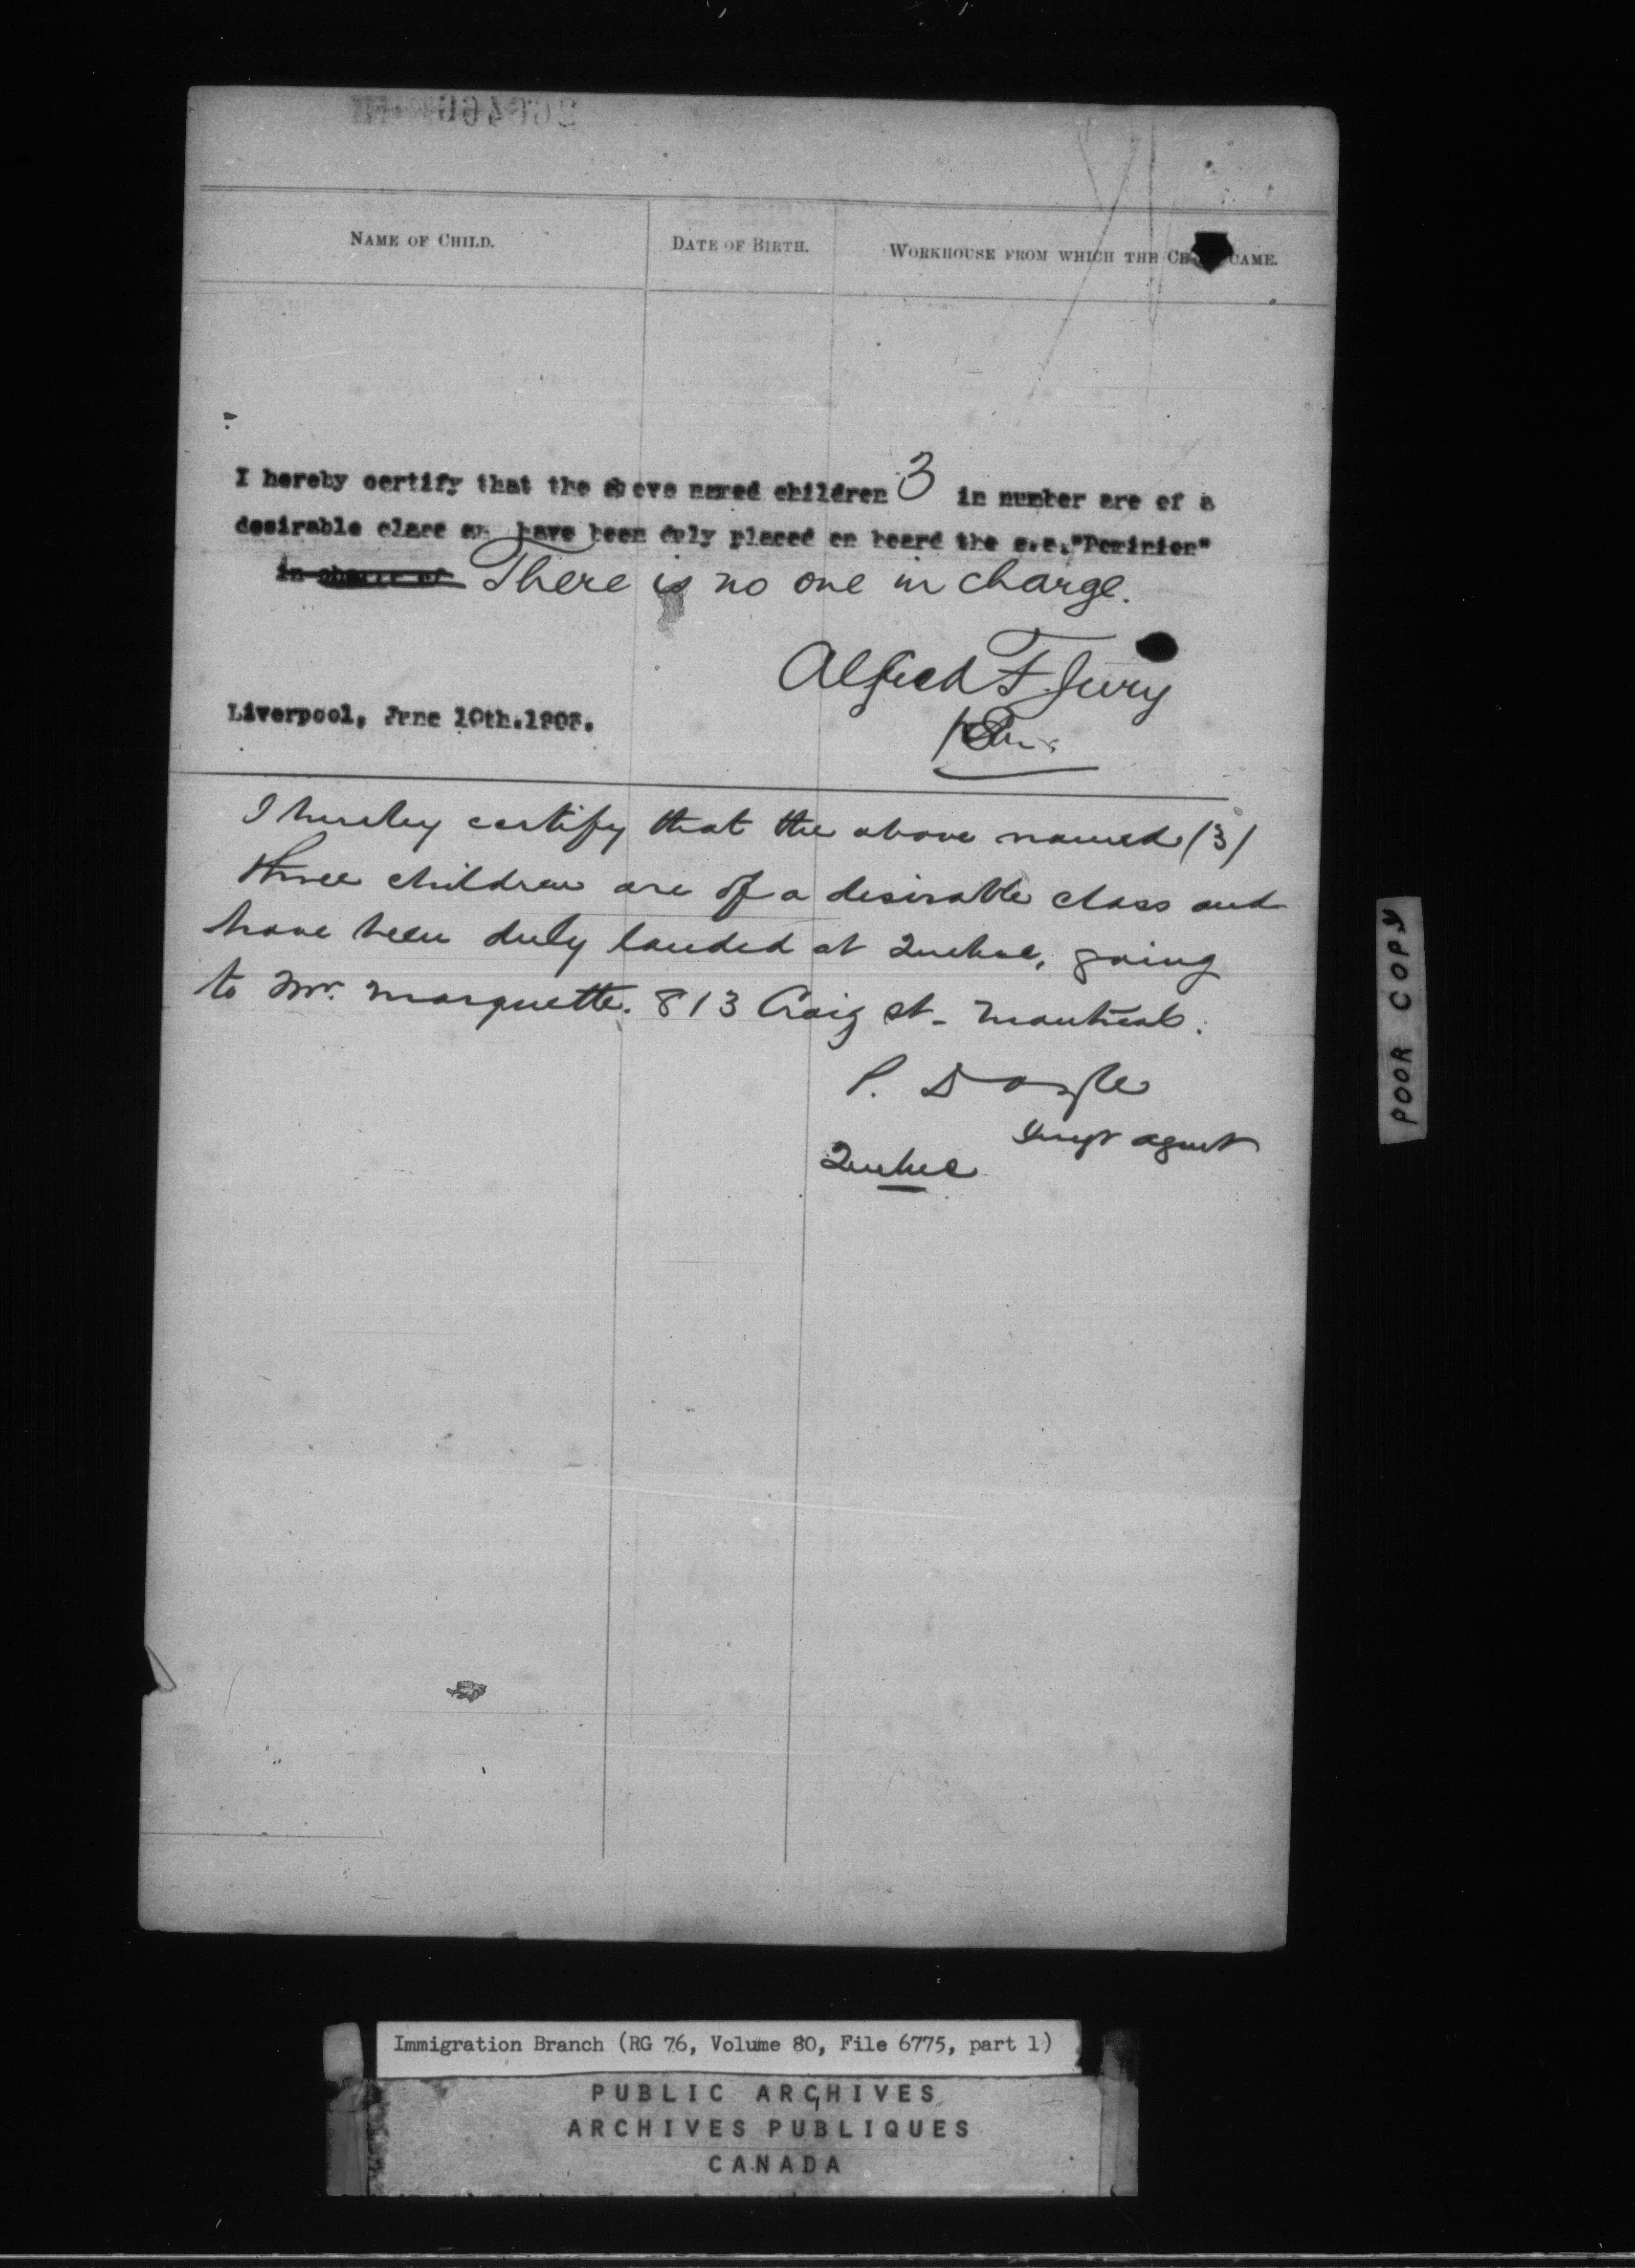 NAME OF CHILD. DATE OF BIRTH. WORKHOUSE FROM WHICH THE CAME.
I hereby certify that the above named children 3 in number are of a
desirable class have been duly placed on board the s.s. "Dominion"
in charge of There is no one in charge.
Alfred F. Jury
Liverpool, June 10th.
I hereby certify that the above named (3)
three children are of a desirable class and
have been duly landed at Quebec, going
to Mr. Marquette. 813 Craig St. Montreal.
P. Doyle
Immgr agent
Quebec
POOR COPY
Immigration Branch (RG 76, Volume 80, File 6775, part 1)
PUBLIC ARCHIVES
ARCHIVES PUBLIQUES
CANADA